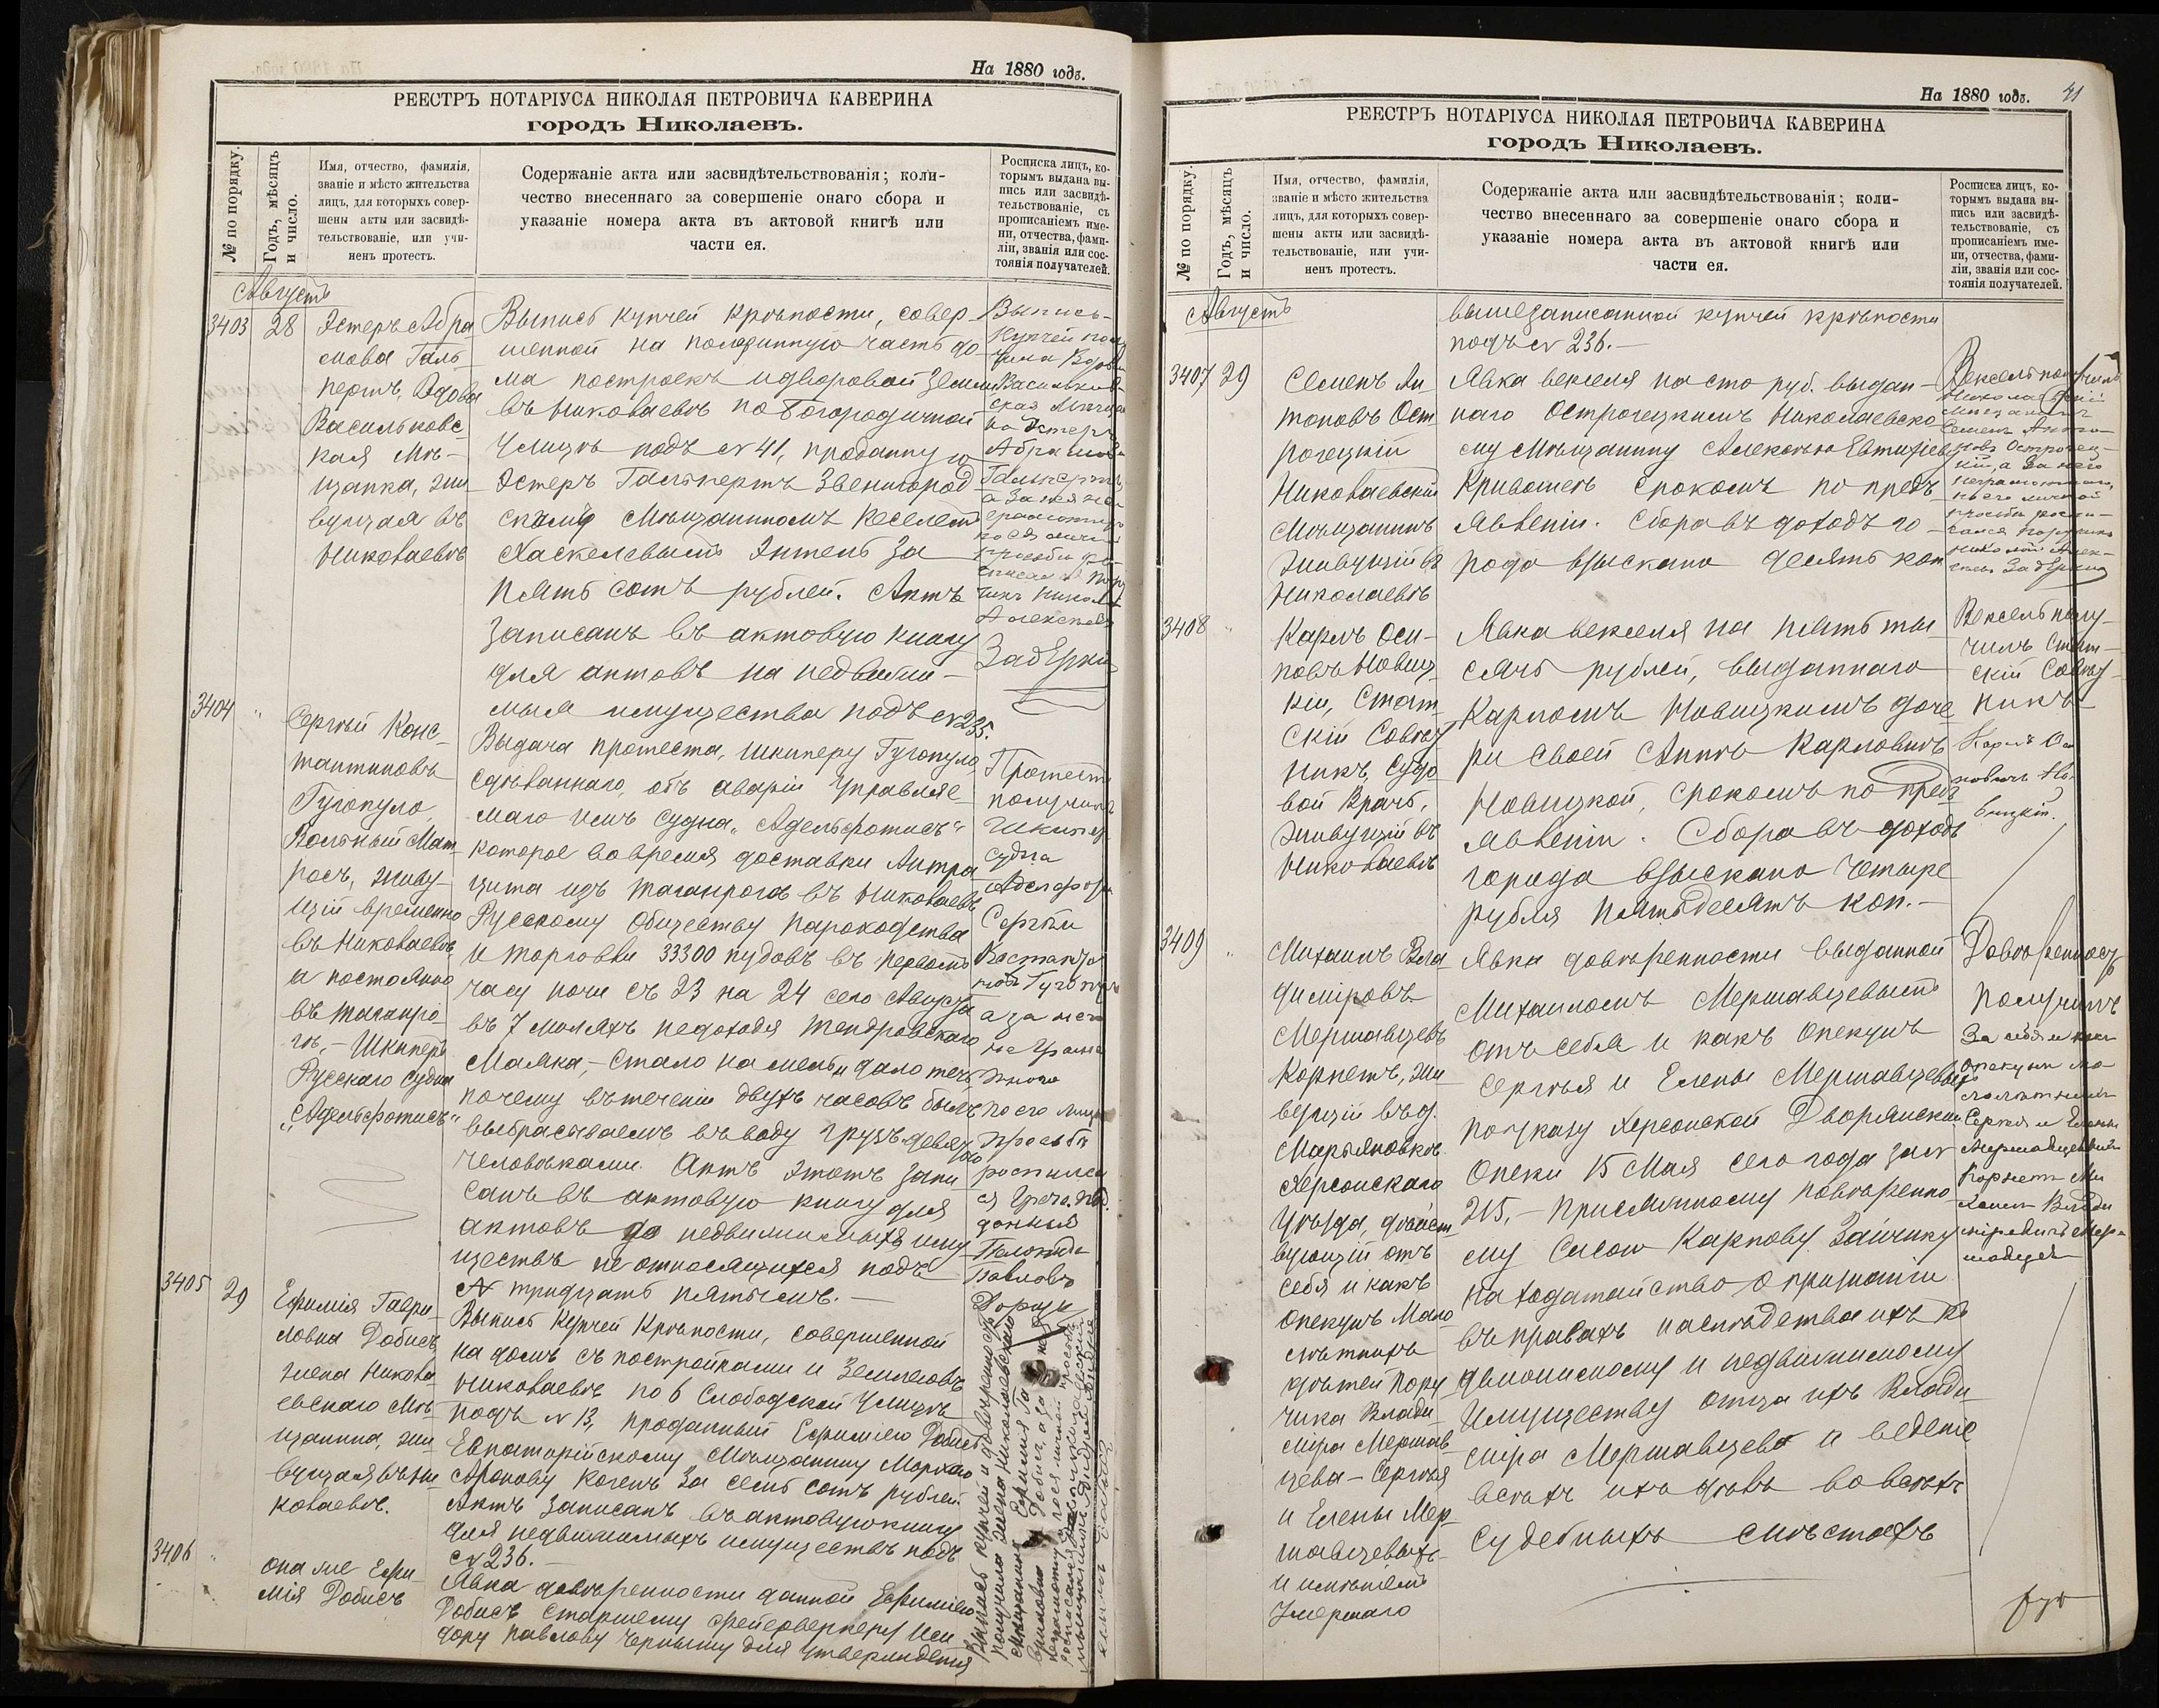 На 1880 годъ.
РЕЕСТРЪ НОТАРІУСА НИКОЛАЯ ПЕТРОВИЧА КАВЕРИНА
городъ Николаевъ.
№ по порядку.
Годъ, мѣсяцъ
и число.
Имя, отчество, фамилія,
званіе и мѣсто жительства
лицъ, для которыхъ совер-
шены акты или засвидѣ-
тельствованіе, или учи-
ненъ протестъ.
Содержаніе акта или засвидѣтельствованія; коли-
чество внесеннаго за совершеніе онаго сбора и
указаніе номера акта въ актовой книгѣ или
части ея.
Росписка лицъ, ко-
торымъ выдана вы-
пись или засвидѣ-
тельствованіе, съ
прописаніемъ име-
ни, отчества, фами-
ліи, званія или сос-
тоянія получателей.
Августъ
3403
28
Эстеръ Абра
мова Галь
пертъ, Вдова
Васильковс-
кая Мѣ-
щанка, жи
вущая въ
Николаевѣ
Выпись купчей крѣпости, совер-
шенной на половинную часть до-
ма построекъ и дворовой земли
въ Николаевѣ по Богородичной
Улицѣ подъ № 41, проданную
Эстеръ Гальпертъ Звенигород
скимъ Мѣщаниномъ Кеселемъ
Хаскелевымъ Энтель за
пять сотъ рублей. Актъ
записанъ въ актовую книгу
для актовъ на недвижи-
мыя имущества подъ № 235.
Выпись
Купчей полу
чила Вдова
Васильков
ская Мѣща
Эстеръ
Абрамова
Гальпертъ
Николай
Алексѣевъ
Задеркин
3404
"
Сергѣй Конс-
тантиновъ
Гугопуло,
Вольный Мат
росъ, живу-
щій временно
въ Николаевѣ
а постоянно
въ Таганро-
гѣ, – Шкиперъ
Русскаго судна
„Адельфотисъ“
Выдача протеста, шкиперу Гугопуло,
сдѣланнаго, объ аваріи управляе-
маго имъ судна „Адельфотисъ“
которое во время доставки Антра
цита изъ Таганрога въ Николаевъ
Русскому Обществу пароходства
и торговли 33300 пудовъ въ первомъ
часу ночи съ 23 на 24 сего Августа
въ 7 миляхъ недоходя Тендровскаго
Маяка, – стало на мель и дало течь
почему въ теченіи двухъ часовъ былъ
выбрасываемъ въ воду грузъ девятью
человѣками. Актъ этотъ запи
санъ въ актовую книгу для
актовъ до недвижимыхъ иму
ществъ не относящихся подъ
№ тридцать пятымъ. –
Протестъ
получилъ
Шкиперъ
судна
Адельфоти
Сергѣй
Константи
новъ Гугопуло
а за него
не грамо
тнаго
по его личн
просьбѣ
росписал
ся Греч. под
данный
Павловъ
3405
29
Ефимія Гаври
ловна Добисъ
жена Никола
евскаго Мѣ
щанина, жи
вущая въ Ни
колаевѣ.
Выпись Купчей Крѣпости, совершенной
на домъ съ постройками и землею въ
Николаевѣ по 6 Слободской Улицѣ
подъ № 13, проданный Ефиміею Добисъ
Евпаторійскому Мѣщанину Мордхаю
Аронову Когенъ за семь сотъ рублей.
Актъ записанъ въ актовую книгу
для недвижимыхъ имуществъ подъ
№ 236. –
3406
"
Она же Ефи
мія Добисъ
Явка довѣренности данной Ефиміею
Добисъ старшему фейерверкеру Иси
дору Павлову Чернышу для утвержденія
Выпись купчей и довѣренность
получила жена Николаевскаго
Мѣщанина Ефимія Га
вриловна Добисъ, а за
неграмотну
росписался
На 1880 годъ.
41
РЕЕСТРЪ НОТАРІУСА НИКОЛАЯ ПЕТРОВИЧА КАВЕРИНА
городъ Николаевъ.
№ по порядку.
Годъ, мѣсяцъ
и число.
Имя, отчество, фамилія,
званіе и мѣсто жительства
лицъ, для которыхъ совер-
шены акты или засвидѣ-
тельствованіе, или учи-
ненъ протестъ.
Содержаніе акта или засвидѣтельствованія; коли-
чество внесеннаго за совершеніе онаго сбора и
указаніе номера акта въ актовой книгѣ или
части ея.
Росписка лицъ, ко-
торымъ выдана вы-
пись или засвидѣ-
тельствованіе, съ
прописаніемъ име-
ни, отчества, фами-
ліи, званія или сос-
тоянія получателей.
Августъ
вышезаписанной купчей крѣпости
подъ № 236. –
3407
29
Семенъ Ан
тоновъ Ост
рогецкій
Николаевскій
Мѣщанинъ
живущій въ
Николаевѣ
Явка векселя на сто руб. выдан-
наго Острогецкимъ Николаевско
му Мѣщанину Алексѣю Евтихіеву
Кривошею срокомъ по предъ
явленіи. Сбора въ доходъ го-
рода взыскано десять коп
Вексель получилъ
Николаевскій
Мѣщанинъ
Семенъ Анто-
новъ Острогец-
кій, а за него
неграмотнаго,
по его личной
просьбѣ роспи-
сался
Николай Алек-
сѣевъ Задеркин
3408
"
Карлъ Оси-
повъ Новиц
кій, Стат-
скій Совѣт
никъ, Судо
вой Врачъ,
живущій въ
Николаевѣ
Явка векселя на пять ты-
сячъ рублей, выданнаго
Карломъ Новицкимъ доче
ри своей Аннѣ Карловнѣ
Новицкой, срокомъ по предъ
явленіи. Сбора въ доходъ
города взыскано четыре
рубля пятьдесятъ коп. –
Вексель полу-
чилъ Стат-
скій Совѣт-
никъ
Карлъ Оси
повичъ Но-
вицкій.
3409
"
Михаилъ Вла
диміровъ
Мершавцевъ
Корнетъ, жи
вущій въ д.
Марьяновкѣ
Херсонскаго
Уѣзда, дѣйст
вующій отъ
себя и какъ
опекунъ Мало
лѣтнихъ
дѣтей Пору
чика Влади-
міра Мершав
цева – Сергѣя
и Елены Мер
шавцевыхъ –
и имѣніемъ
Умершаго
Явка довѣренности выданной
Михаиломъ Мершавцевымъ
отъ себя и какъ опекунъ
Сергѣя и Елены Мершавцевыхъ
по указу Херсонской Дворянской
Опеки 15 Мая сего года за №
215, – присяжному повѣренно
му Сисою Карпову Зайчику
на ходатайство о признаніи
въ правахъ наслѣдства ихъ къ
движимому и недвижимому
имуществу отца ихъ Влади-
міра Мершавцева и веденіе
всѣхъ ихъ дѣлъ во всѣхъ
судебныхъ мѣстахъ
Довѣренность
получилъ
За себя и какъ
опекунъ ма-
лолѣтнихъ
Сергѣя и Елены
Мершавцевыхъ
Корнетъ Ми
хаилъ Влади
міровичъ Мер-
шавцевъ